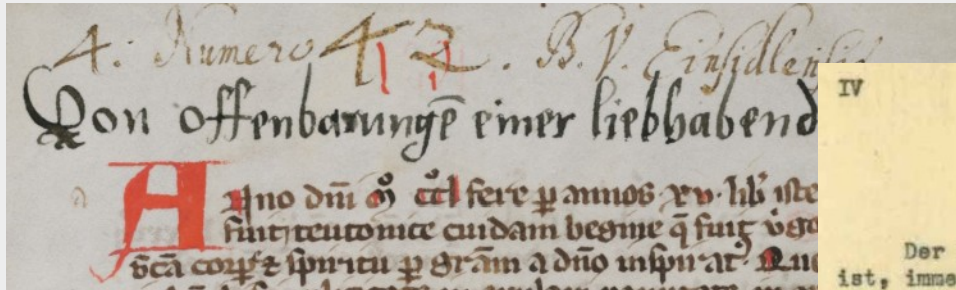 4. Numero 42. B. V. Einsidlensis
Von offenbarungē einer liebhabend
Ano dn̄i m̊ cc̊l fere ꝑ annos xv lib iste
fuit teutonice cuidam begine q̄ fuit v̓go
sc̄a corꝑe ⁊ spiritu ꝑ grām a dño inspirat
IV
Der
ist, imme